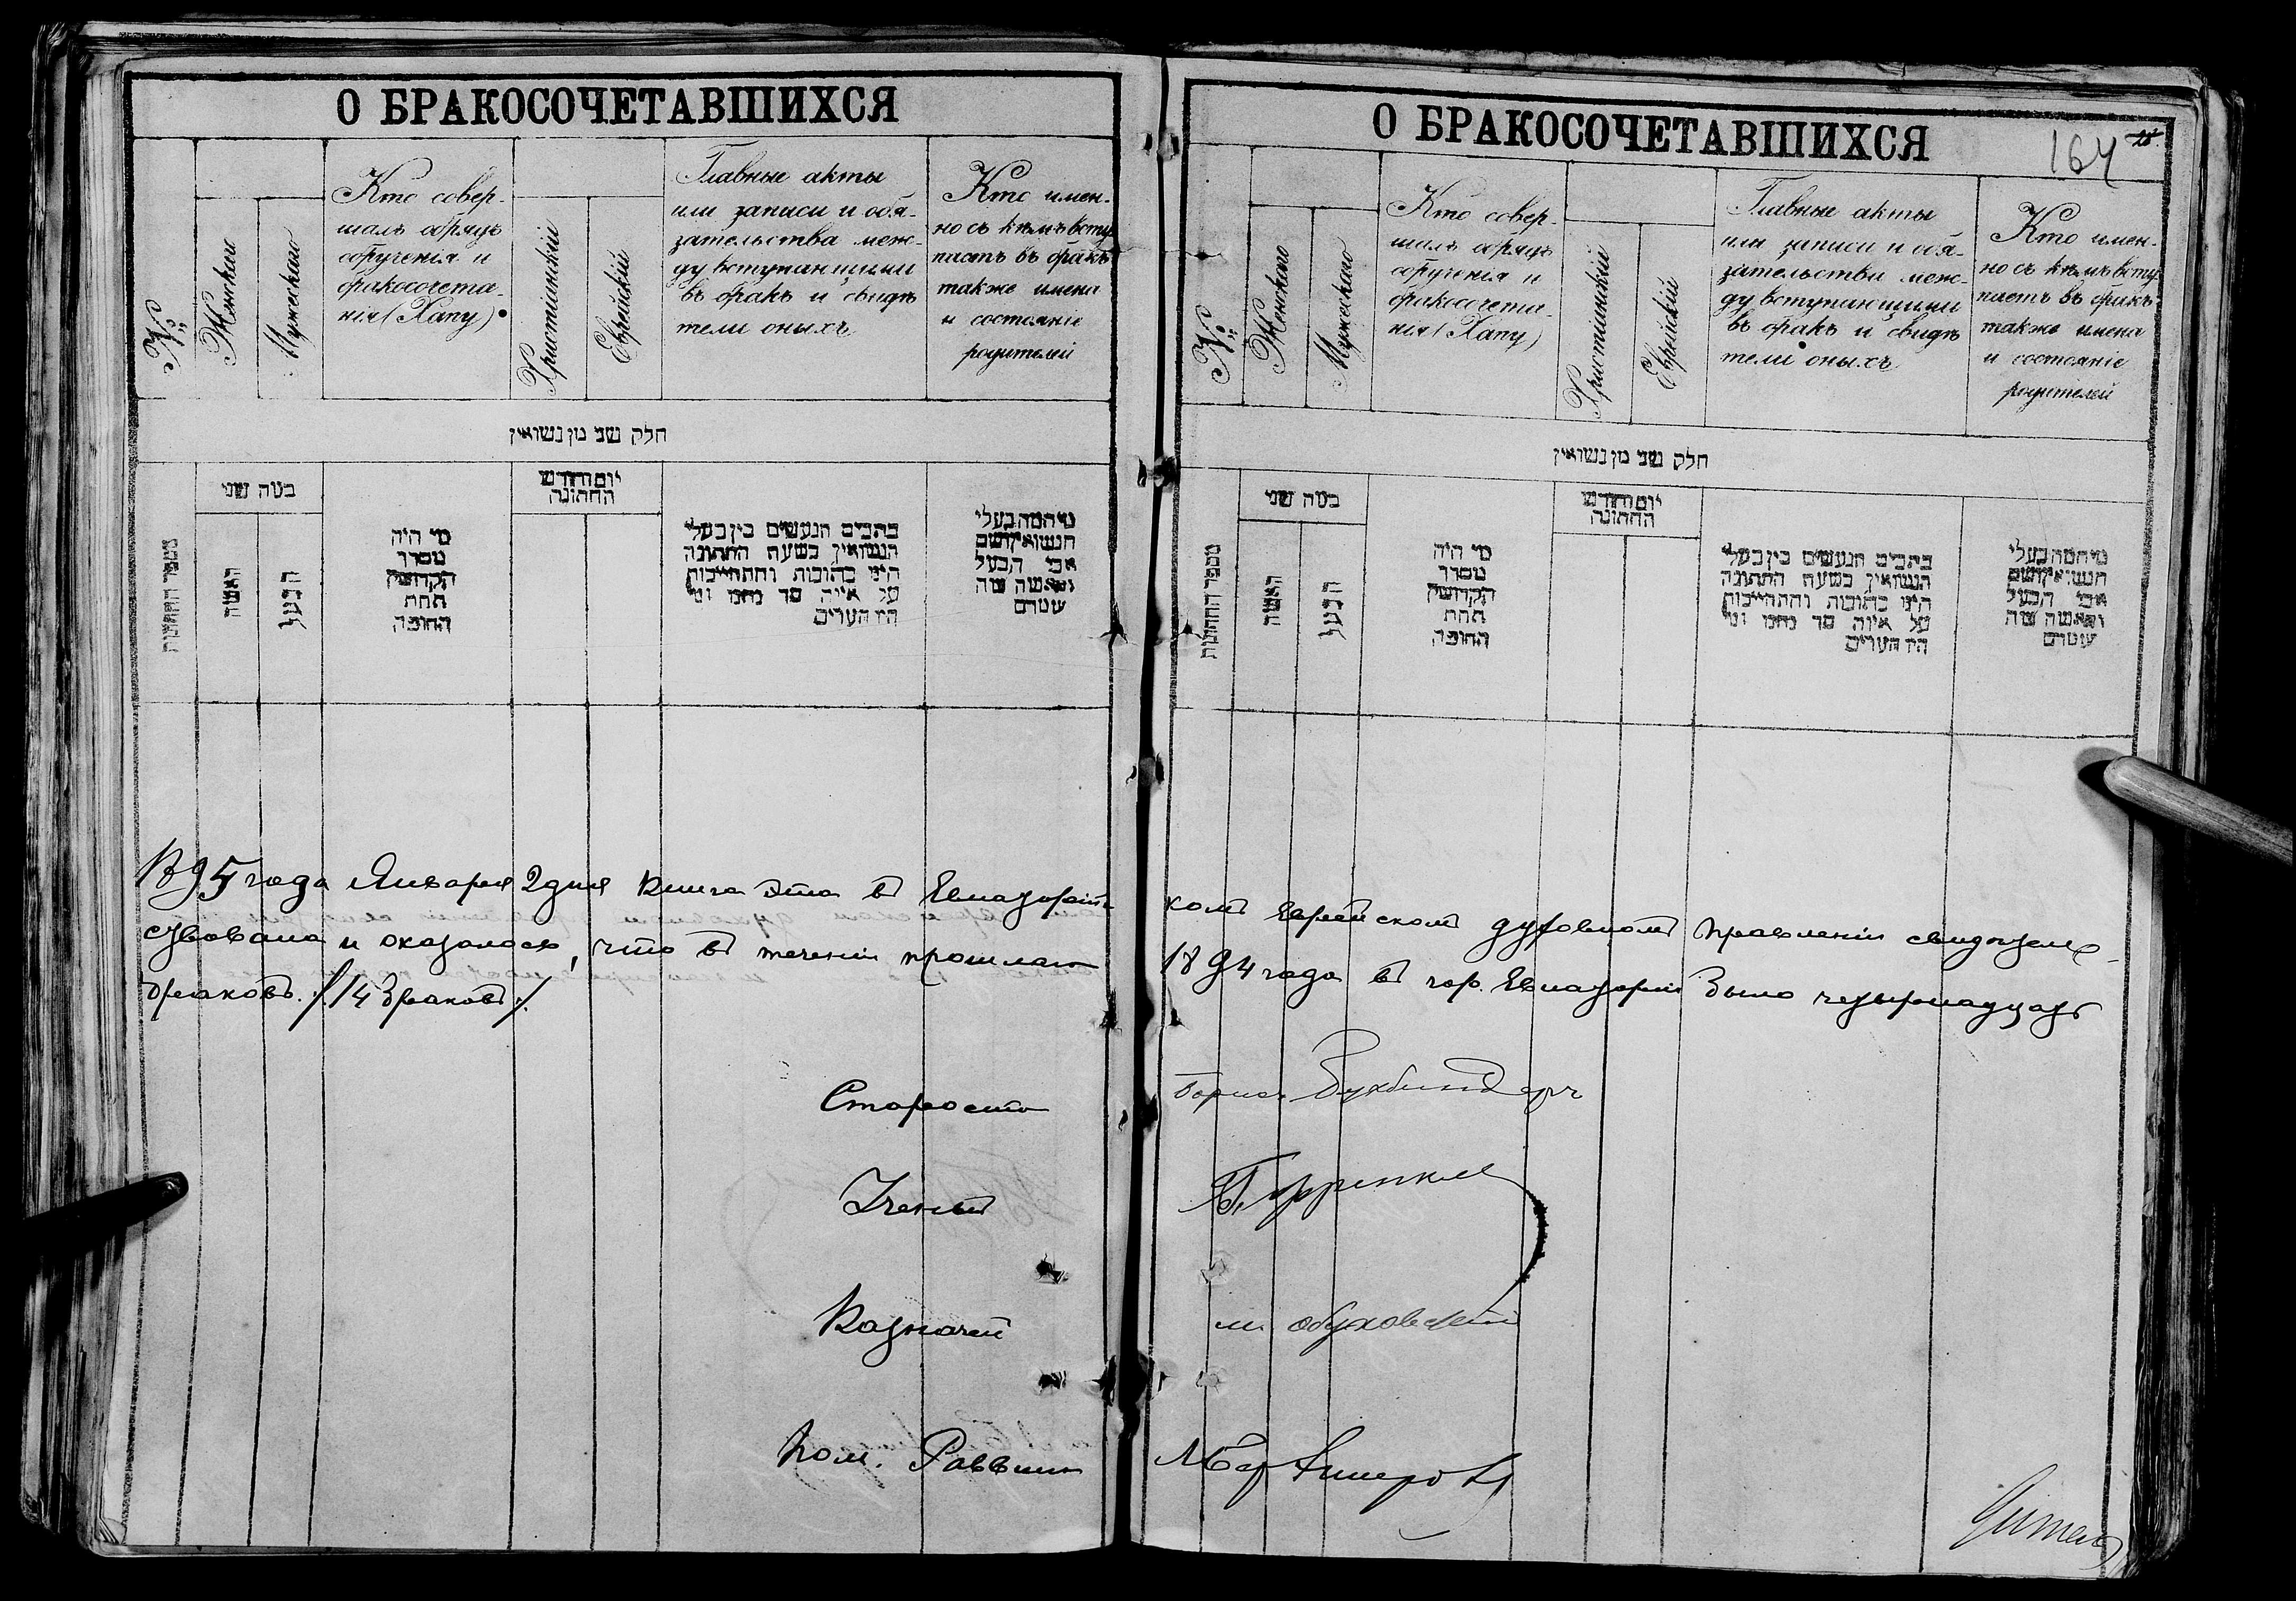 О БРАКОСОЧЕТАВШИХСЯ
№
Женскаго
Мужескаго
Кто совер-
шалъ обрядъ
обрученія и
бракосочета-
нія (Хапу)
Христіанскій
Еврейскій
Главные акты
или записи и обя-
зательства меж-
ду вступающими
въ бракъ и свидѣ
тели оныхъ
Кто имен-
но съ кѣмъ всту
паетъ въ бракъ
также имена
и состояніе
родителей
חלק שני מן נשואין
מספר החתונות
במה שני
האשה
הבעל
מי היה
מסדר
הקדושין
תחת
החופה
יום וחודש
החתונה
כתבים הנעשים בין בעלי
הנשואין בשעת החתונה
היינו כתובות והתחייבות
על איזה סך
העדים
בעלי
אבי הבעל
О БРАКОСОЧЕТАВШИХСЯ
164
№
Женскаго
Мужескаго
Кто совер-
шалъ обрядъ
обрученія и
бракосочета-
нія (Хапу)
Христіанскій
Еврейскій
Главные акты
или записи и обя-
зательства меж-
ду вступающими
въ бракъ и свидѣ
тели оныхъ
Кто имен-
но съ кѣмъ всту
паетъ въ бракъ
также имена
и состояніе
родителей
חלק שני מן נשואין
מספר החתונות
במה שני
האשה
הבעל
מי היה
מסדר
הקדושין
תחת
החופה
יום וחודש
החתונה
כתבים הנעשים בין בעלי
הנשואין בשעת החתונה
היינו כתובות והתחייבות
על איזה סך
העדים
בעלי
אבי הבעל
1895 года Января 2 дня книга эта въ Евпаторійс- комъ Еврейскомъ духовномъ правленіи свидѣтель-
ствована и оказалось, что въ теченіи прошлаго 1894 года въ гор. Евпаторіи было четырнадцать
браковъ. /14 браковъ/.
Староста Борисъ Букбиндеръ
Ученый
Казначей М. Обуховскій
Пом. Раввина